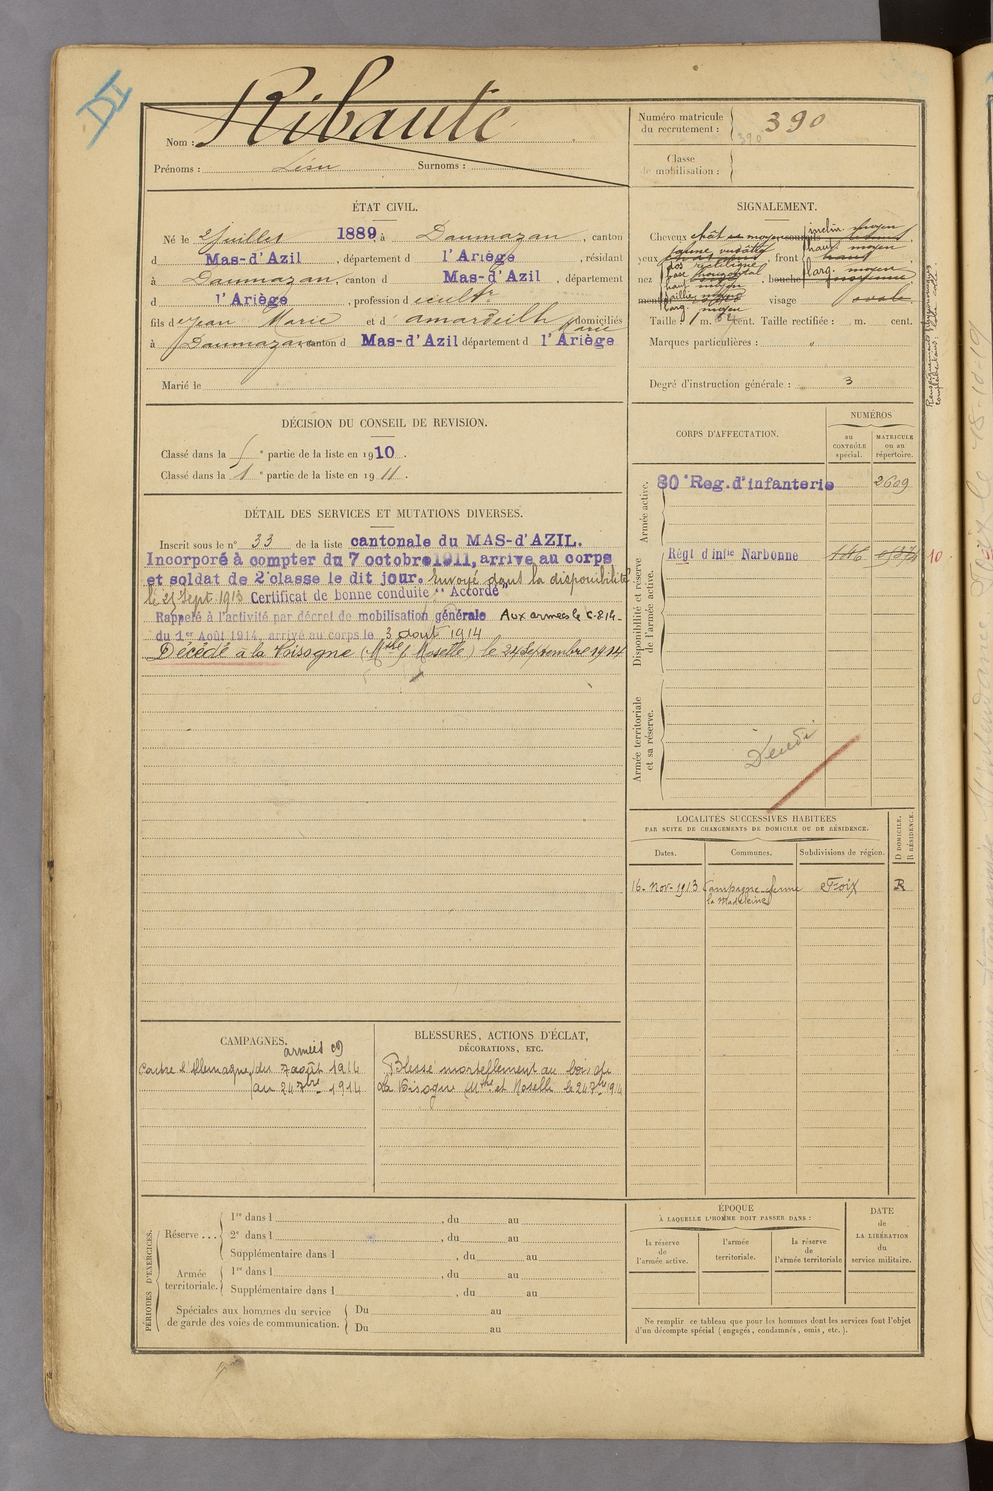 DI
Nom : Ribaute
Prénoms : Surnoms :
Numéro matricule du recrutement : 390
390
Classe de mobilisation :
ÉTAT CIVIL.
Né le 2 Juillet 1889, à Daumazan, canton
d Mas-d'Azil, département d l'Ariège, résidant
à Daumazan, canton d Mas-d'Azil, département
d l'Ariège, profession d
fils de Jean Marie et d' amardeilh Marie domiciliés
à Daumazan canton d Mas-d'Azil département d l'Ariège
Marié le
SIGNALEMENT.
Cheveux chât
yeux jaune verdâtre, front
inclin. moyen
haut. moyen
larg. moyen
nez dos rectiligne
base horizontal
haut. moyen
saillie moyen
larg. moyen
bouche moyenne
menton visage ovale
Taille 1 m. cent. Taille rectifiée : m. cent.
Marques particulières : "
Degré d'instruction générale : 3
DÉCISION DU CONSEIL DE REVISION.
Classé dans la e partie de la liste en 1910.
Classé dans la 1 e partie de la liste en 1911.
CORPS D'AFFECTATION.
NUMÉROS
au CONTRÔLE spécial.
MATRICULE ou au répertoire.
Armée active.
80e Reg. d'infanterie 2609
Disponibilité et réserve de l'armée active.
Régt d'infie Narbonne
10
Armée territoriale et sa réserve.
DÉTAIL DES SERVICES ET MUTATIONS DIVERSES.
Inscrit sous le n° 33 de la liste cantonale du MAS-d'AZIL.
Incorporé à compter du 7 octobre 1911, arrive au corps
et soldat de 2e classe le dit jour. Envoyé dans la disponibilité
le 25 Sept. 1913 Certificat de bonne conduite "Accordé"
Rappelé à l'activité par décret de mobilisation générale Aux armées le 6-8-14-
du 1er Août 1914, arrivé au corps le 3 août 1914
Décédé à la Voisogne (Mthe / Moselle) le 24 Septembre 1914
LOCALITÉS SUCCESSIVES HABITÉES
PAR SUITE DE CHANGEMENTS DE DOMICILE OU DE RÉSIDENCE.
Dates. Communes. Subdivisions de région. D DOMICILE. R RÉSIDENCE.
16. Nov. 1913 Campagne ferme la Madeleine Foix R
CAMPAGNES.
armées
Contre l'Allemagne, du 7 août 1914
au 24 7bre 1914
BLESSURES, ACTIONS D'ÉCLAT,
DÉCORATIONS, ETC.
Blessé mortellement au bois de
La Voisogne Mthe et Moselle le 24 7bre 1914
PÉRIODES D'EXERCICES.
Réserve ...
1re dans l , du au
2e dans l , du au
Supplémentaire dans l , du au
Armée territoriale.
1re dans l , du au
Supplémentaire dans l , du au
Spéciales aux hommes du service de garde des voies de communication.
Du au
Du au
ÉPOQUE
À LAQUELLE L'HOMME DOIT PASSER DANS :
la réserve de l'armée active.
l'armée territoriale.
la réserve de l'armée territoriale
DATE de LA LIBÉRATION du service militaire.
Ne remplir ce tableau que pour les hommes dont les services font l'objet
d'un décompte spécial (engagés, condamnés, omis, etc.).